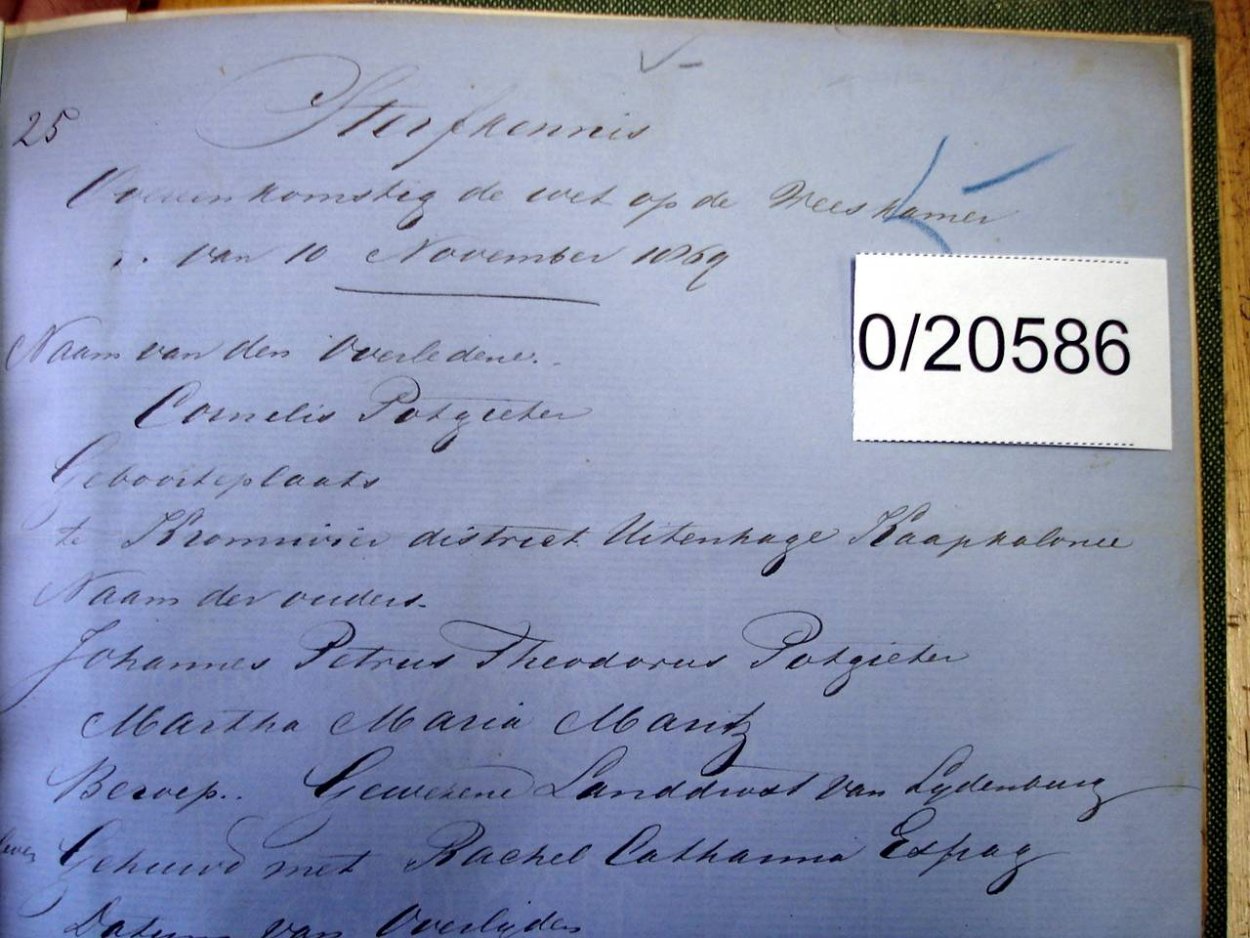 25
Sterfkennis
Overeenkomstig de wet op de Weeskamer
van 10 November 1869
0/20586
Naam van den Overledene.
Cornelis Potgieter
Geboorteplaats
te Kromrivier district Uitenhage Kaapkolonie
Naam der ouders.
Johannes Petrus Theodorus Potgieter
Martha Maria Maritz
Beroep. Gewezene Landdrost van Lydenburg
Gehuwd met Rachel Catharina Espag
Datum van Overlyden